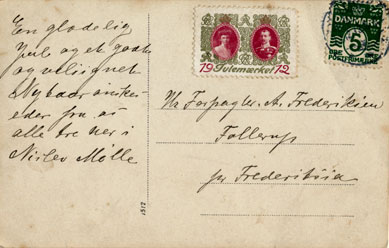 En glædelig
Jul og et godt
og velsignet
Nytaar ønskes
eder fra os
alle tre her i
Nislev Mølle
19 Julemærket 12
DANMARK
5
Hr Forpagter A. Frederiksen
Follerup
pr Fredericia
1512